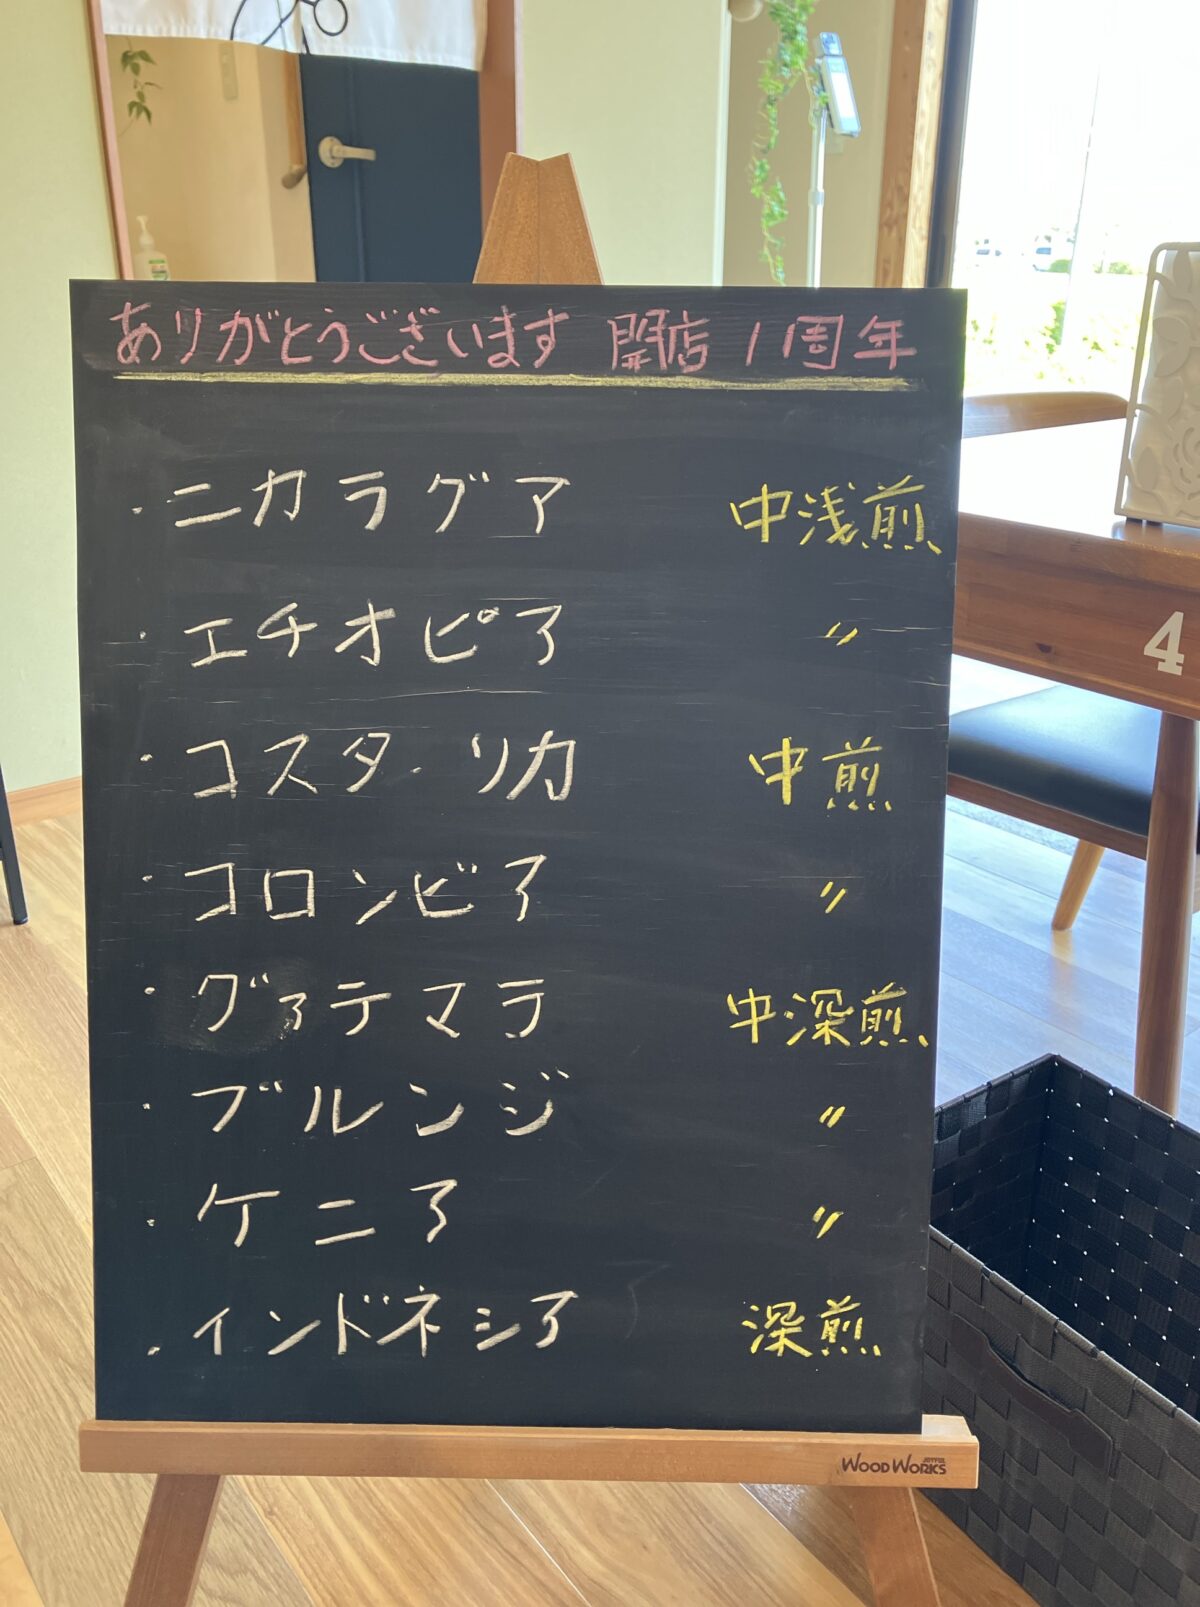 ありがとうございます 開店11周年
・ニカラグア 中浅煎
・エチオピア 〃
・コスタ・リカ 中煎
・コロンビア 〃
・グァテマラ 中深煎
・ブルンジ 〃
・ケニア 〃
・インドネシア 深煎
JOYFUL
WOOD WORKS
4